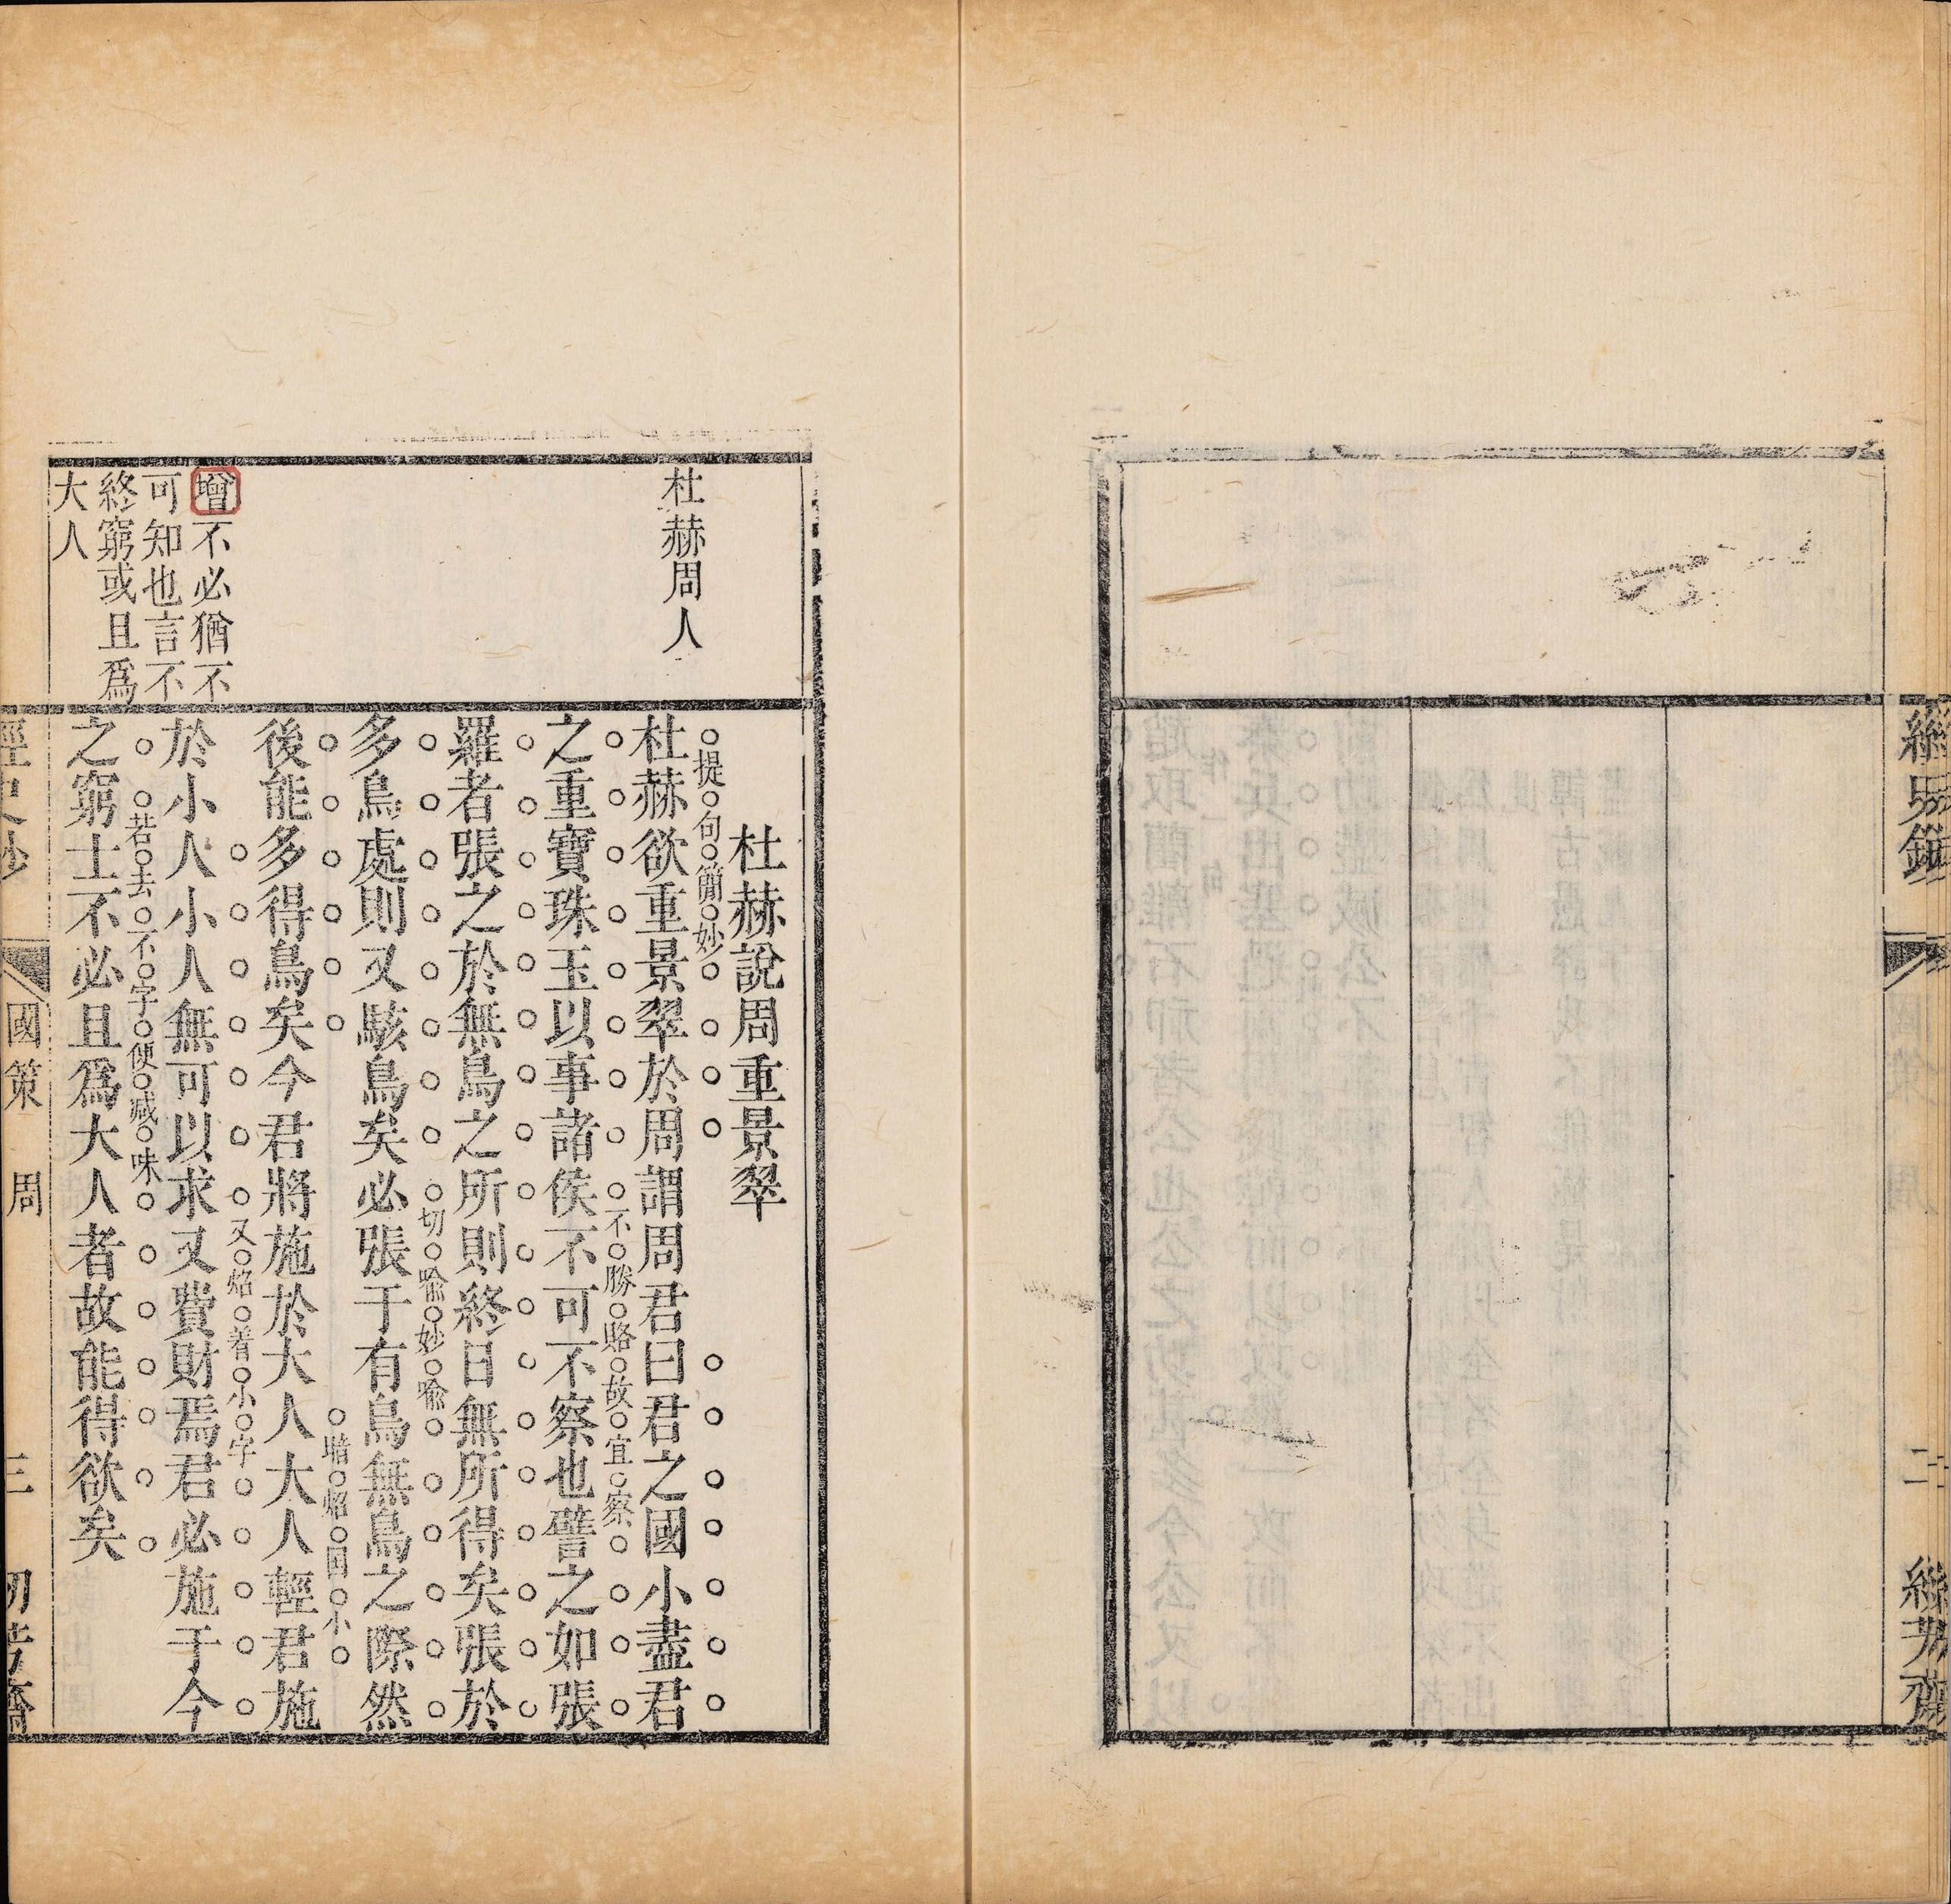 二
杜赫周人
增不必猶不
可知也言不
終窮或且爲
大人
杜赫說周重景翠
提句簡妙
杜赫欲重景翠於周謂周君曰君之國小盡君
不勝賂故宜察
之重寶珠玉以事諸侯不可不察也譬之如張
羅者張之於無鳥之所則終日無所得矣張於
切喻妙喻
多鳥處則又駭鳥矣必張于有鳥無鳥之際然
暗炤因小
後能多得鳥矣今君將施於大人大人輕君施
又炤着小字
於小人小人無可以求又費財焉君必施于今
若去不字便减味
之窮士不必且爲大人者故能得欲矣
國策 周 三